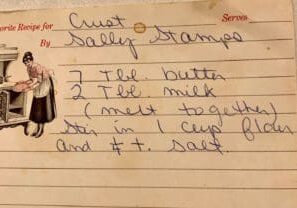 Crust
Favorite Recipe for Serves
Sally Stamps
By
7 Tbl. butter
2 Tbl. milk
(melt together)
Stir in 1 cup flour
and ¼ t. salt.